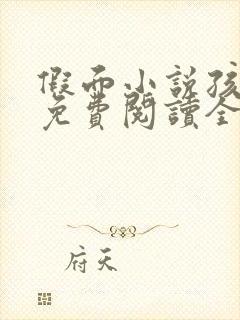 假而小説孩
免費閱讀全
府天